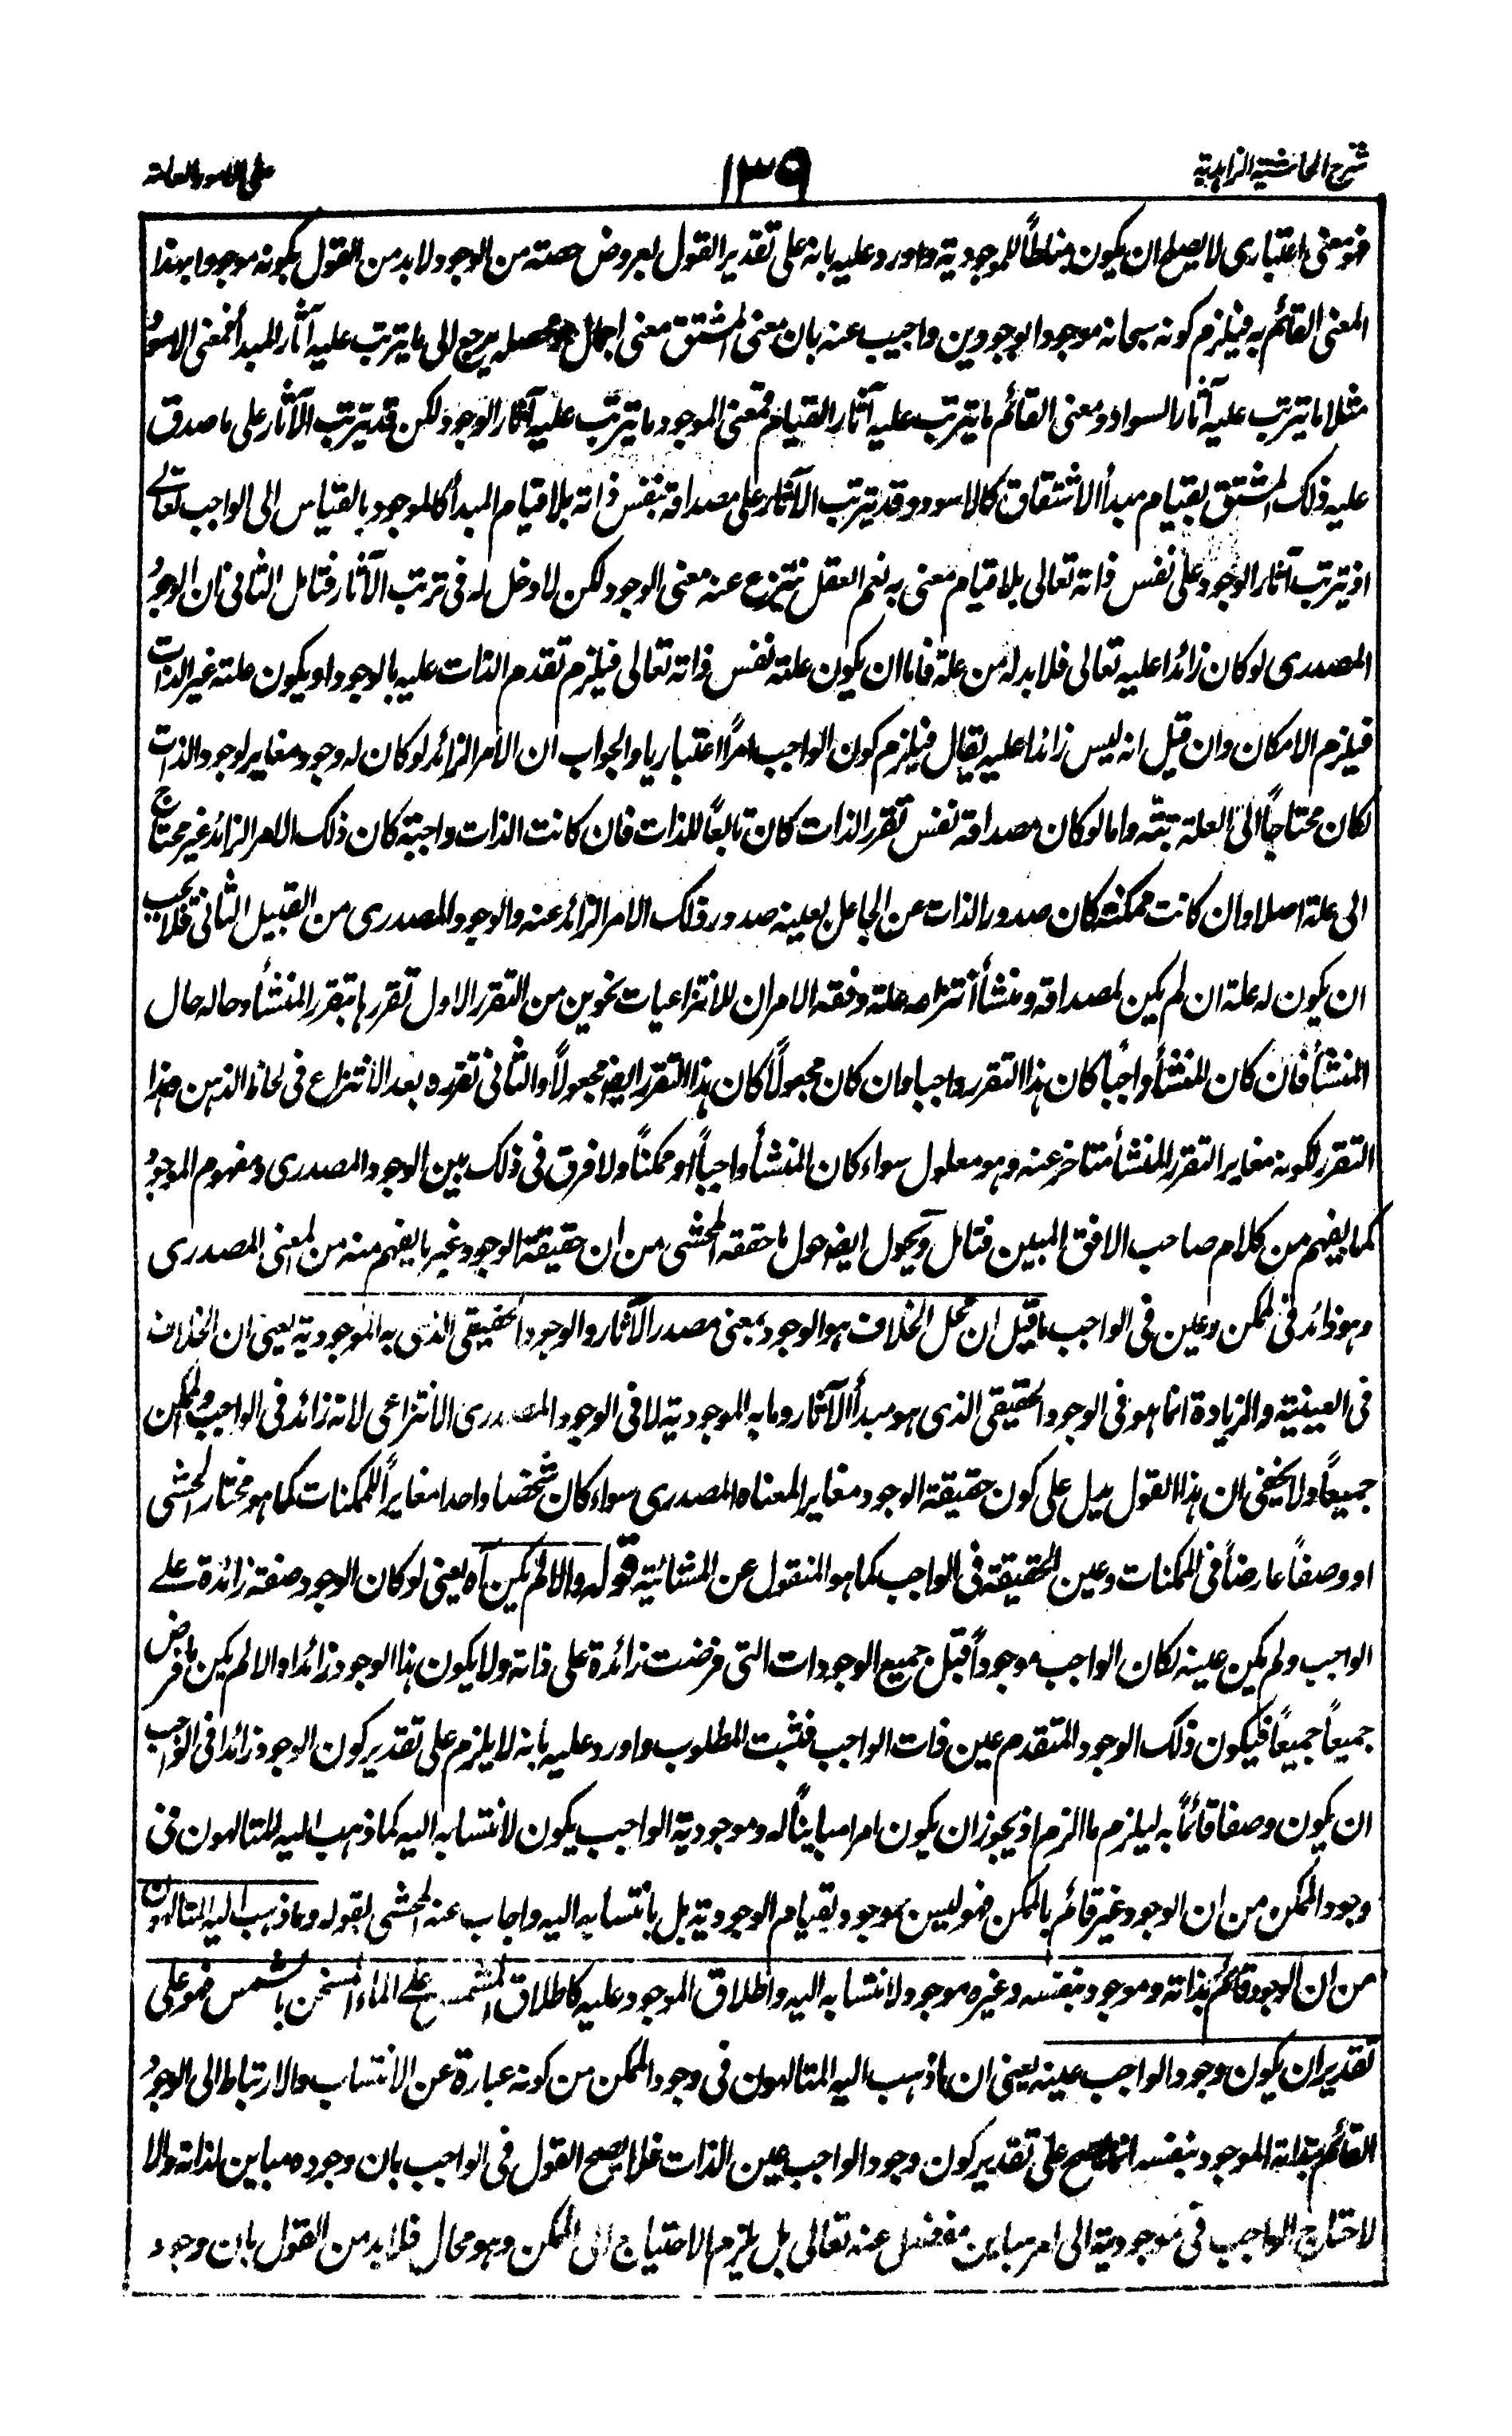 شرح الحاشية الزاهدية
١٣٩
على الامور العامة
فهو معنى اعتبارى لا يصلح ان يكون مناطاً للموجودية واورد عليه بانه على تقدير القول بعروض حصته من الوجود لا بد من القول بكونه موجودا بهذا
المعنى القائم به فيلزم كونه سبحانه موجودا بوجودين واجيب عنه بان معنى المشتق معنى اجمالى محصله يرجع الى ما يترتب عليه آثار المبدأ فمعنى الاسود
مثلا ما يترتب عليه آثار السواد ومعنى القائم ما يترتب عليه آثار القيام فمعنى الموجود ما يترتب عليه آثار الوجود لكن قد يترتب الآثار على ما صدق
عليه ذلك المشتق بقيام مبدأ الاشتقاق كالاسود وقد يترتب الآثار على مصداقه بنفس ذاته بلا قيام المبدأ كالموجود بالقياس الى الواجب تعالے
اذ يترتب آثار الوجود على نفس ذاته تعالى بلا قيام معنى به نعم العقل ينتزع عنه معنى الوجود لكن لا دخل له فى ترتب الآثار فتامل الثانى ان الوجود
المصدرى لو كان زائدا عليه تعالى فلا بد له من علة فاما ان يكون علته نفس ذاته تعالى فيلزم تقدم الذات عليه بالوجود او يكون علته غير الذات
فيلزم الامكان وان قيل انه ليس زائدا عليه يقال فيلزم كون الواجب امرًا اعتباريا والجواب ان الامر الزائد لو كان له وجود مغاير لوجود الذات
لكان محتاجاً الى العلة بتة واما لو كان مصداقه نفس تقرر الذات كان تابعاً للذات فان كانت الذات واجبة كان ذلك الامر الزائد غير محتاج
الى علة اصلا وان كانت ممكنة كان صدور الذات عن الجاعل بعينه صدور ذلك الامر الزائد عنه والوجود المصدرى من القبيل الثانى فلا يجب
ان يكون له علة ان لم يكن لمصداقه ومنشأ انتزاعه علة وفقه الامر ان للانتزاعيات نحوين من التقرر الاول تقررها بتقرر المنشأ وحاله حال
المنشأ فان كان المنشأ واجباً كان هذا التقرر واجبا وان كان مجعولاً كان هذا التقرر ايضا مجعولاً والثانى تقرره بعد الانتزاع فى لحاظ الذهن وهذا
التقرر لكونه مغاير التقرر للمنشأ متاخر عنه وهو معلول سواء كان المنشأ واجباً او ممكناً ولا فرق فى ذلك بين الوجود المصدرى ومفهوم الموجود
كما يفهم من كلام صاحب الافق المبين فتامل ويحول ايضا حول ما حققه المحشى من ان حقيقة الوجود غير ما يفهم منه من المعنى المصدرى
وهو زائد فى الممكن وعين فى الواجب ما قيل ان محل الخلاف هو الوجود بمعنى مصدر الآثار والوجود الحقيقى الذى به الموجودية يعنى ان الخلاف
فى العينية والزيادة انما هو فى الوجود الحقيقى الذى هو مبدأ الآثار وما به الموجودية لا فى الوجود المصدرى الانتزاعى لانه زائد فى الواجب والممكن
جميعاً ولا يخفى ان هذا القول يدل على كون حقيقة الوجود مغايرا لمعناه المصدرى سواء كان شخصا واحدا مغايراً للممكنات كما هو مختار المحشى
او وصفاً عارضاً فى الممكنات وعين الحقيقة فى الواجب كما هو المنقول عن المشائية قوله والا لم يكن آه يعنى لو كان الوجود صفة زائدة علے
الواجب ولم يكن عينه لكان الواجب موجوداً قبل جميع الوجودات التى فرضت زائدة على ذاته ولا يكون هذا الوجود زائدا والا لم يكن ما فرض
جميعاً جميعاً فيكون ذلك الوجود المتقدم عين ذات الواجب فثبت المطلوب واورد عليه بأنه لا يلزم على تقدير كون الوجود زائدا فى الواجب
ان يكون وصفا قائماً به ليلزم ما الزم اذ يجوز ان يكون امرا مبايناً له وموجودية الواجب يكون لانتسابه اليه كما ذهب اليه المتالهون فى
وجود الممكن من ان الوجود غير قائم بالممكن فهو ليس بموجود بقيام الوجود به بل بانتسابه اليه واجاب عنه المحشى بقوله وما ذهب اليه المتالهون
من ان الوجود قائم بذاته وموجود بنفسه وغيره موجود لانتسابه اليه واطلاق الموجود عليه كاطلاق المشمس على الماء المسخن بالشمس فهو على
تقدير ان يكون وجود الواجب عينه يعنى ان ما ذهب اليه المتالهون فى وجود الممكن من كونه عبارة عن الانتساب والارتباط الى الوجود
القائم بذاته الموجود بنفسه انما يصح على تقدير كون وجود الواجب عين الذات فلا يصح القول فى الواجب بان وجوده مباين لذاته والا
لاحتاج الواجب فى موجوديته الى امر مباين منفصل عنه تعالى بل يلزم الاحتياج الى الممكن وهو محال فلا بد من القول بان وجود